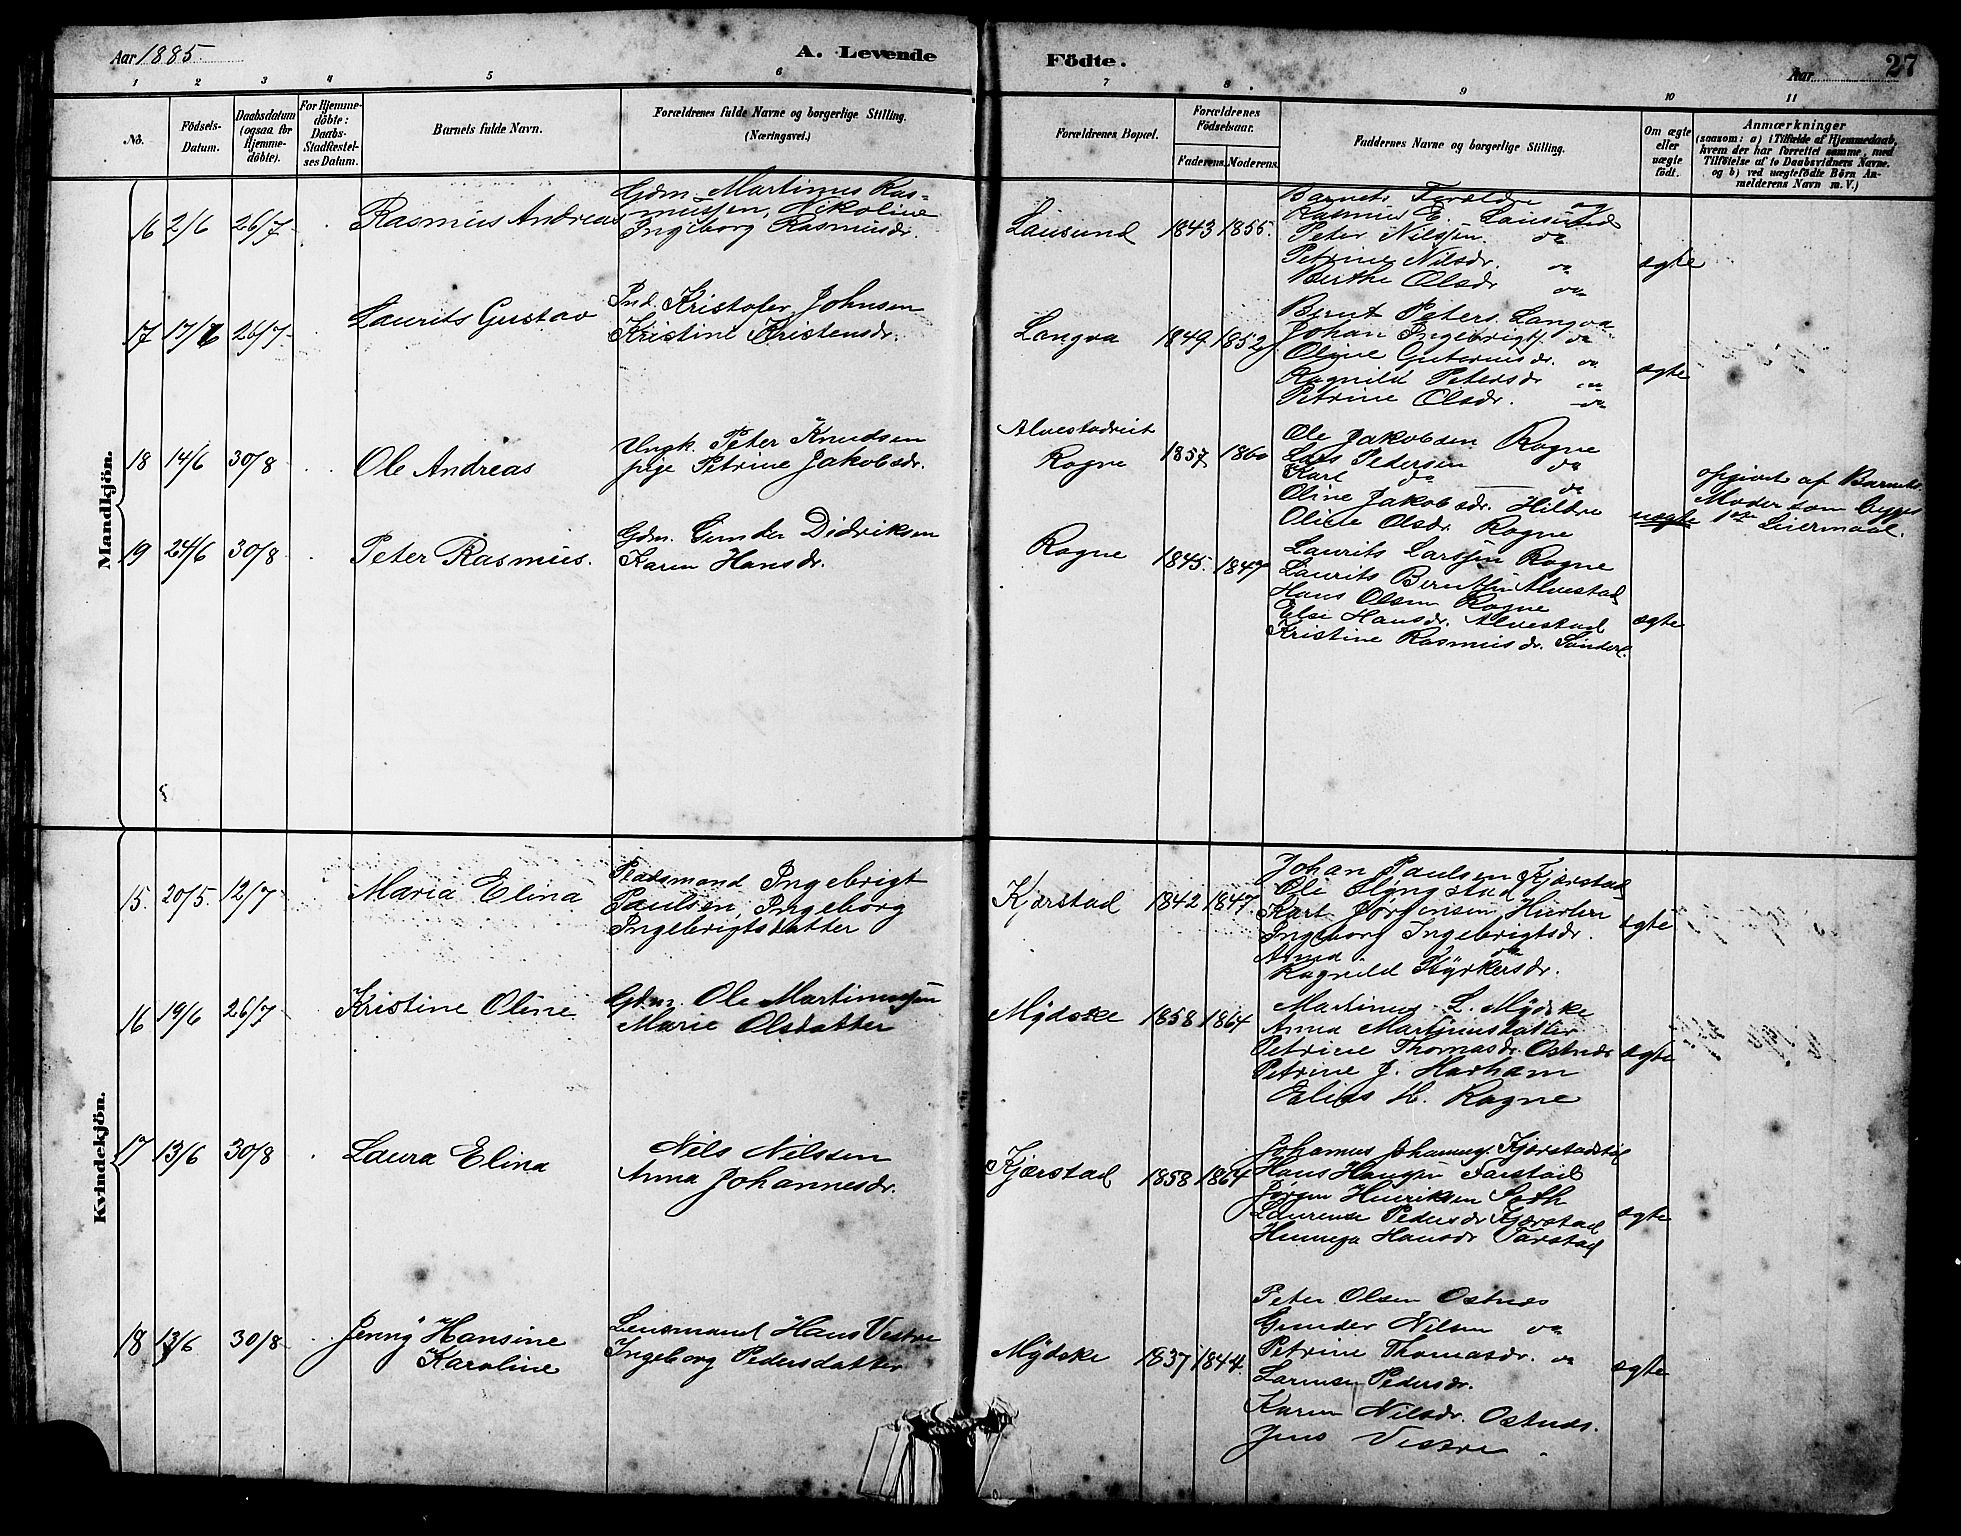 Aar 1885.
A. Levende Födte.
Aar
27
1 2 3 4 5 6 7 8 9 10 11
No.
Födsels-
Datum.
Daabsdatum
(ogsaa for
Hjemme-
döbte).
For Hjemme-
döbte:
Daabs-
Stadfæstel-
ses Datum.
Barnets fulde Navn.
Forældrenes fulde Navne og borgerlige Stilling.
(Næringsvei.)
Forældrenes Bopæl.
Forældrenes
Födselsaar.
Faderens. Moderens.
Faddernes Navne og borgerlige Stilling.
Om ægte
eller
uægte
födt.
Anmærkninger
(saasom: a) i Tilfælde af Hjemmedaab,
hvem der har forrettet samme, med
Tilföielse af to Daabsvidners Navne.
og b) ved uægtefödte Börn An-
melderens Navn m. V.)
Mandkjön.
16 2/6 26/7 Rasmus Andreas
Gdm. Martinus Ras-
mussen, Nikoline
Ingeborg Rasmusdr.
Lausund 1843 1855.
Barnets Forældre og
Rasmus E. Lausund
Peter Nilssen do
Petrine Nilsdr. do
Berthe Olsdr do
ægte
17 17/6 26/7 Laurits Gustav
Ind. Kristofer Johnsen
Kristine Kristensdr.
Longva 1849 1852
Bernt Peters. Longva
Johan Ingebrigts. do
Olene Guttormsdr. do
Ragnild Petersdr do
Petrine Olsdr. do
ægte
18 14/6 30/8 Ole Andreas
Ungk. Peter Knudsen
pige Petrine Jakobsdr.
Alvestadvict
Rogne 1857 1860
Ole Jakobsen Rogne
Lars Pedersen do
Karl do do
Oline Jakobsdr. Hildre
Oline Olsdr. Rogne
uægte
opgivet af Barnets
Moder som begges
1ste Leiermaal.
19 24/6 30/8 Peter Rasmus.
Gdm. Gunder Didriksen
Karen Hansdr.
Rogne 1845. 1847
Laurits Larssen Rogne
Laurits Berntsen Alvestad
Hans Olsen Rogne
Else Hansdr. Alvestad
Kristine Rasmusdr.
ægte
Kvindekjön.
15. 20/5 12/7 Maria Elina
Pladsmand Ingebrigt
Paulsen, Ingeborg
Ingebrigtsdatter
Kjærstad 1842 1847.
Johan Paulsen Kjærstad
Ole Slyngstad
Karl Jørgensen
Ingeborg Ingebrigtsdr.
Anna do
Ragnild Styrkersdr.
ægte
16 19/6 26/7 Kristine Oline
Gdm. Ole Martinussen
Marie Olsdatter
Mydske 1858 1864
Martinus L. Mydske
Anna Martinusdatter
Petrine Thomasdr. Ostnæs
Petrine J. Harham
Elias H. Rogne
ægte
17 13/6 30/8 Laura Elina
Nils Nilssen
Anna Johannesdr.
Kjærstad 1858 1864
Johannes Johannes. Kjærstad
Hans Hansen Farstad
Jørgen Henriksen
Laurense Pedersdr Kjærstad
Hansdr Farstad
ægte
18 13/6 30/8 Jenny Hansine
Karoline
Lensmand Hans Vestre
Ingeborg Pedersdatter
Mydske 1837 1844.
Peter Olsen Ostnæs
Gunder Nilsen do
Petrine Thomasdr. do
Larensen Pedersdr.
Karen Nilsdr. Ostnæs.
Jens Vestre.
ægte